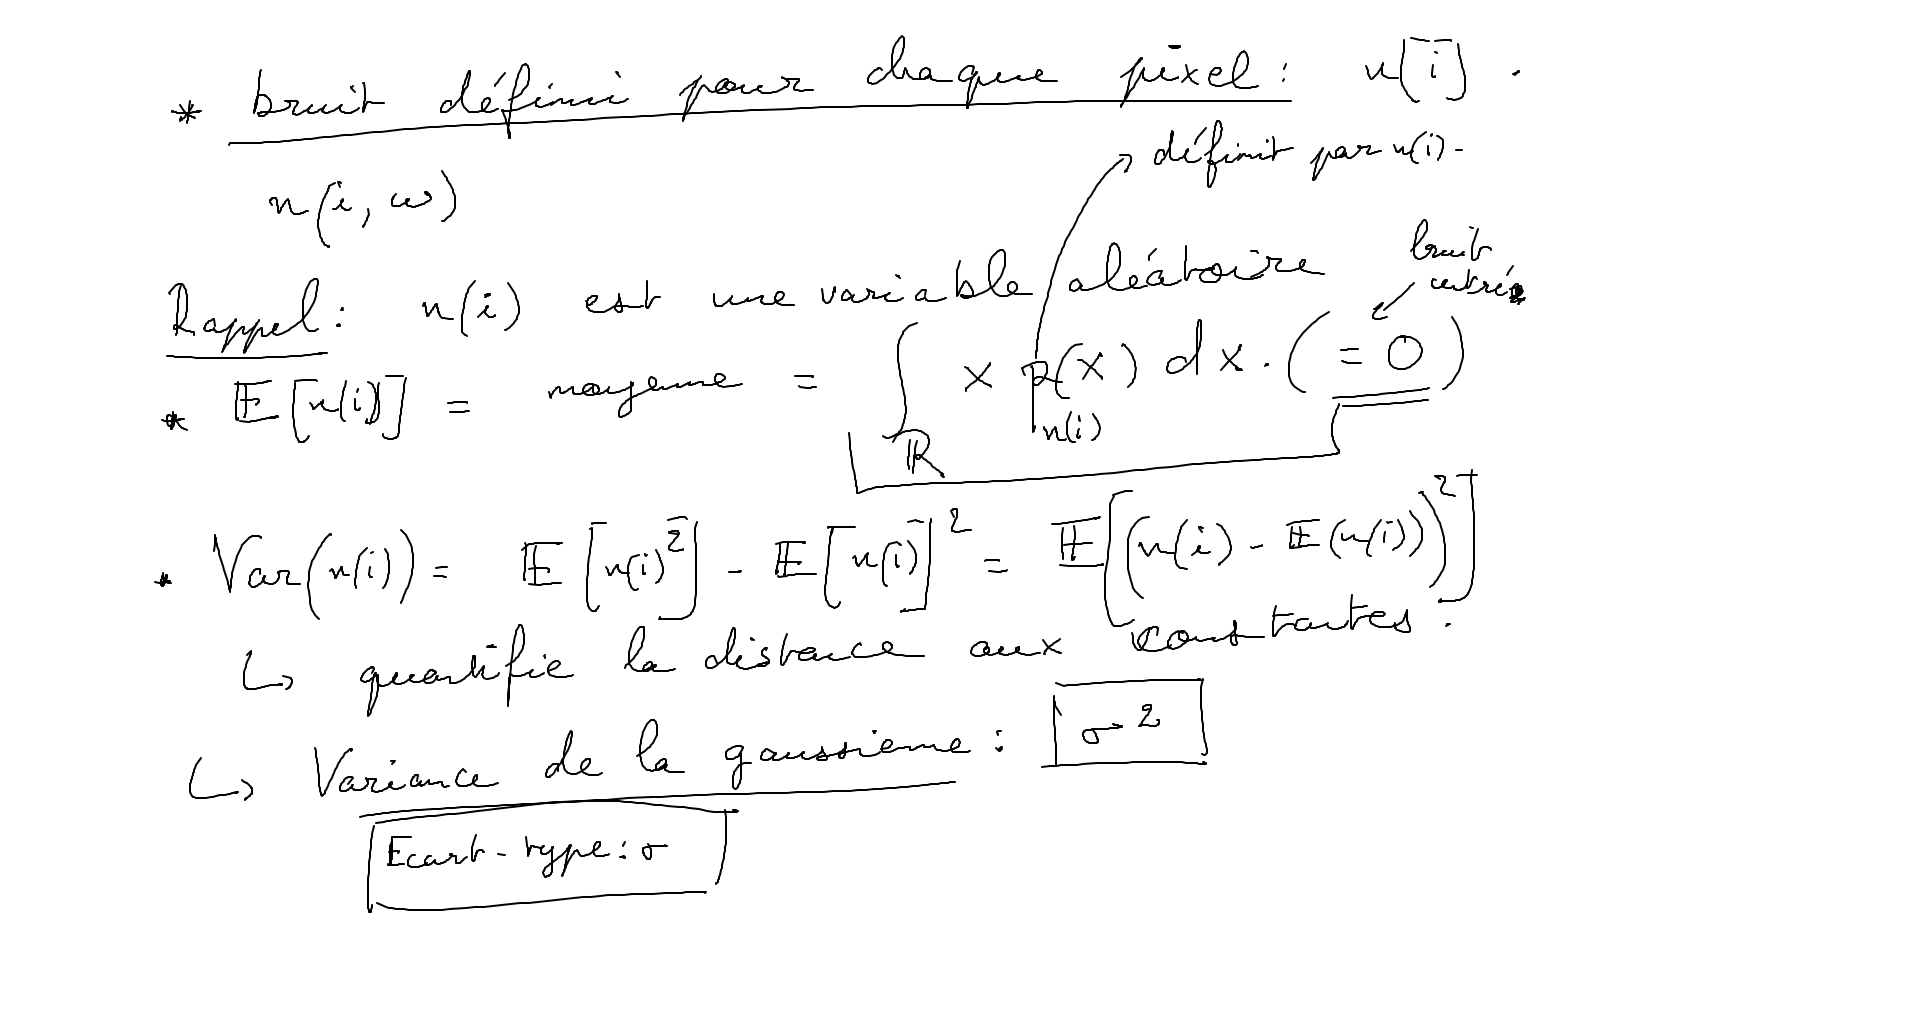 * bruit défini pour chaque pixel : n[i].
définit par n(i).
n(i, ω)
Rappel : n(i) est une variable aléatoire
bruit centré
* 𝔼[n(i)] = moyenne = ∫_ℝ x P_n(i)(x) dx. (= 0)
* Var(n(i)) = 𝔼[n(i)²] - 𝔼[n(i)]² = 𝔼[(n(i) - 𝔼(n(i)))²]
↳ quantifie la distance aux constantes.
↳ Variance de la gaussienne : σ²
Ecart-type : σ